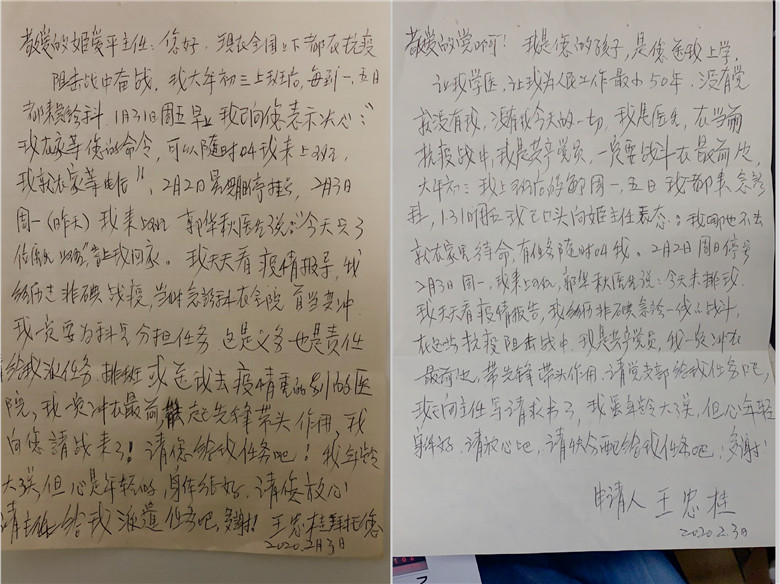 敬爱的姬爱平主任：您好．现在全国上下都在抗疫
阻击战中奋战．我大年初三上班后，每到一，五日
都来急诊科．1月31日周五早上我已向您表示决心：
我在家等您的命令，可以随时叫我来上班，
我就在家等电话"，2月2日星期日停挂号，2月3日
周一（昨天）我来上班 郭华秋医生说："今天只了
我回家． 我天天看疫情报导，我
经历过非碘战疫，当时急诊科在全院 首当其冲
我一定要为科员分担任务 这是义务也是责任
给我派任务 排班 或送我去疫情重的别的医
院，我一定冲在最前，起先锋带头作用，我
向您請战来了！请您给我任务吧！我年龄
大了些，但心是年轻的，身体很好．请您放心
请主任给我派遣任务吧，多谢! 王忠桂拜托您
2020.2月3日
敬爱的党啊！我是您的孩子，是您送我上学，
让我学医，让我为人民工作最少50年．没有党
就没有我，没有我今天的一切，我是医生，在当前
抗疫战中，我是共产党员，一定要战斗在最前边，
大年初三我上班后 周一，五日我都来急诊
科，1.31周五我已口头向姬主任表态：我哪也不去
就在家里待命，有任务随时叫我。2月2日周日停号
2月3日周一，我来上班，郭华秋医生说：今天未排我．
我天天看疫情报告，我经历非碘急诊一线战斗，
在这些抗疫阻击战中，我是共产党员，我一定冲在
最前边，带先锋带头作用．请党支部给我任务吧，
我已向主任写请求书了，我虽年龄大了些，但心年轻
身体好．请放心吧，请快分配给我任务吧，多谢!
申请人 王忠桂
2020.2.3日